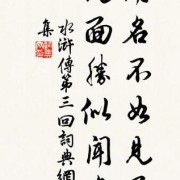 名不如見
面勝似聞
水滸傳第三回詞典網
集